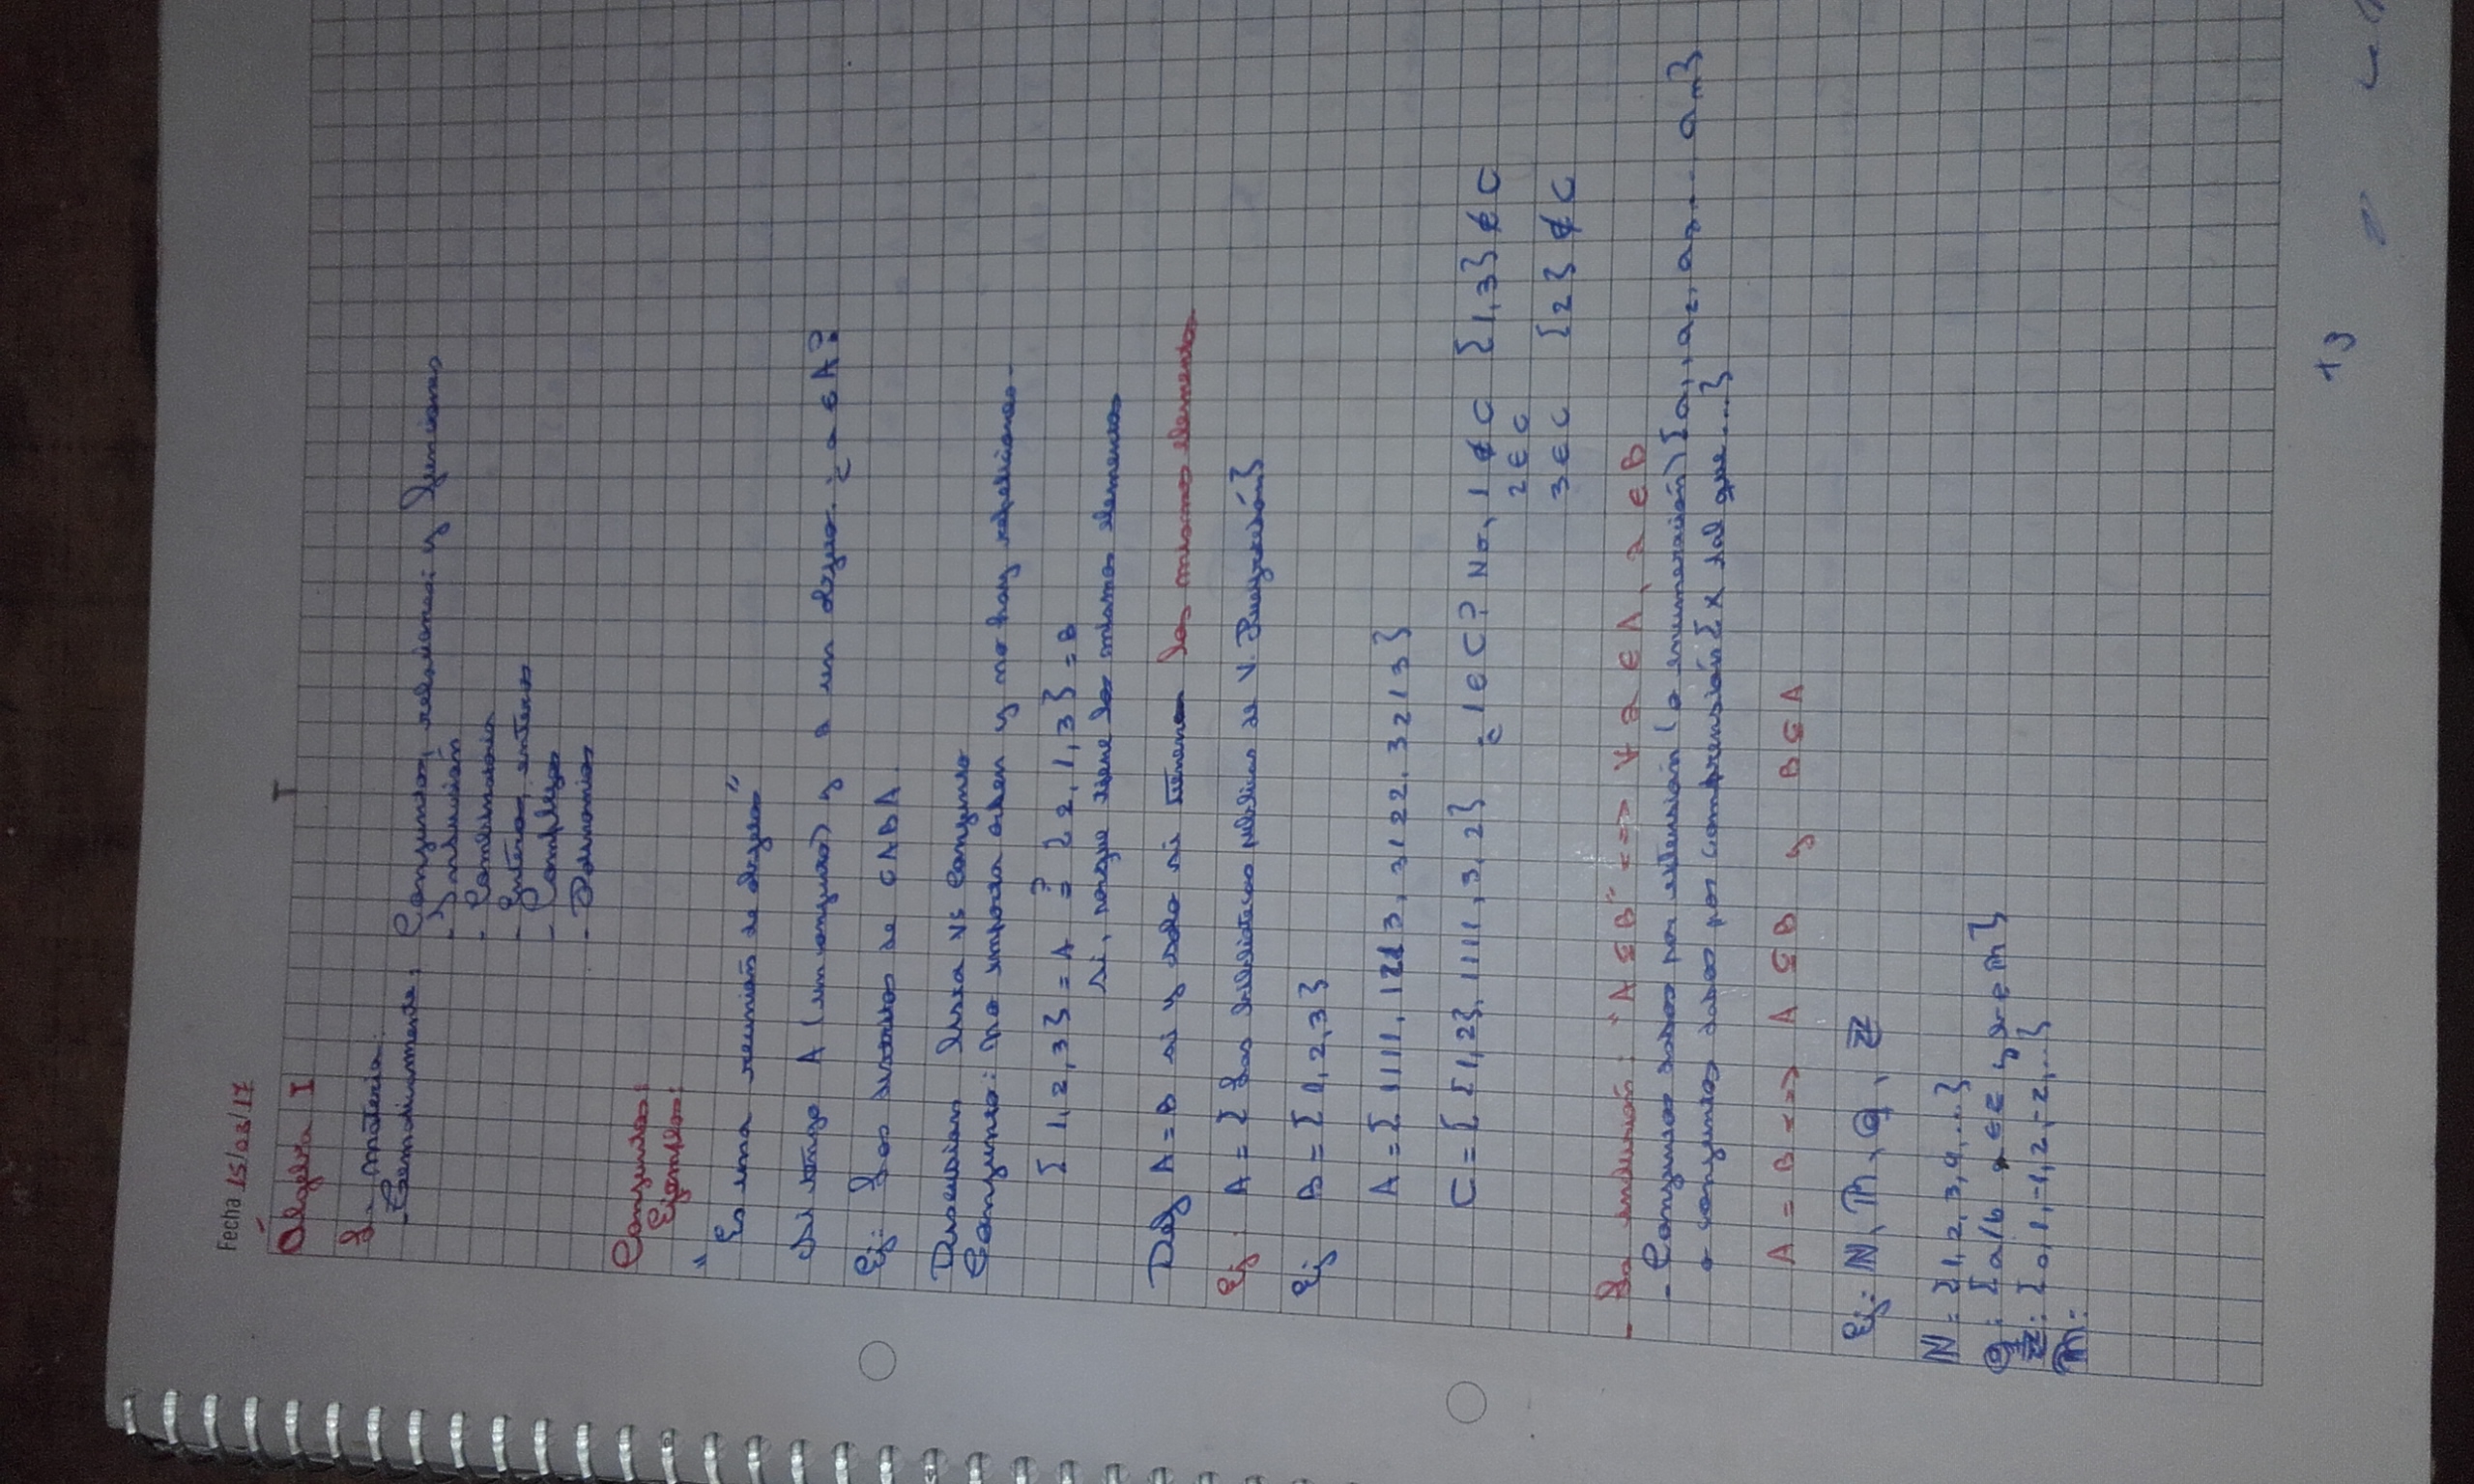 Fecha 15/03/17
Álgebra I
La materia:
- Temáticamente: Conjuntos, relaciones y funciones
- Inducción
- Combinatoria
- Enteros, enteros
- Complejos
- Polinomios
Conjuntos:
Ejemplos:
"Es una reunión de objetos"
Si tengo A (un conjunto) y a un objeto. ¿a ∈ A?
Ej: Los distritos de CABA.
Discusión lista vs Conjunto
Conjunto: no importa orden y no hay repeticiones.
{1, 2, 3} = A ?= {2, 1, 3} = B
Si, porque tiene los mismos elementos
Def A = B si y solo si tienen los mismos elementos
Ej: A = {Las bibliotecas públicas de V. Pueyrredón}
Ej B = {1, 2, 3}
A = {1111, 1213, 3122, 3213}
C = {{1,2}, 1111, 3, 2} ¿1 ∈ C? No, 1 ∉ C {1,3} ∉ C
2 ∈ C
3 ∈ C {2} ∉ C
- La inclusión: "A ⊆ B" <=> ∀ a ∈ A, a ∈ B
- Conjuntos dados por extensión (o enumeración) {a₁, a₂, a₃... aₙ}
o conjuntos dados por comprensión {x tal que ...}
A = B <=> A ⊆ B y B ⊆ A
Ej: ℕ, ℝ, ℚ, ℤ
ℕ = {1, 2, 3, 4, ...}
ℚ: {a/b a ∈ ℤ y b ∈ ℕ}
ℤ: {0, 1, -1, 2, -2, ...}
ℝ: